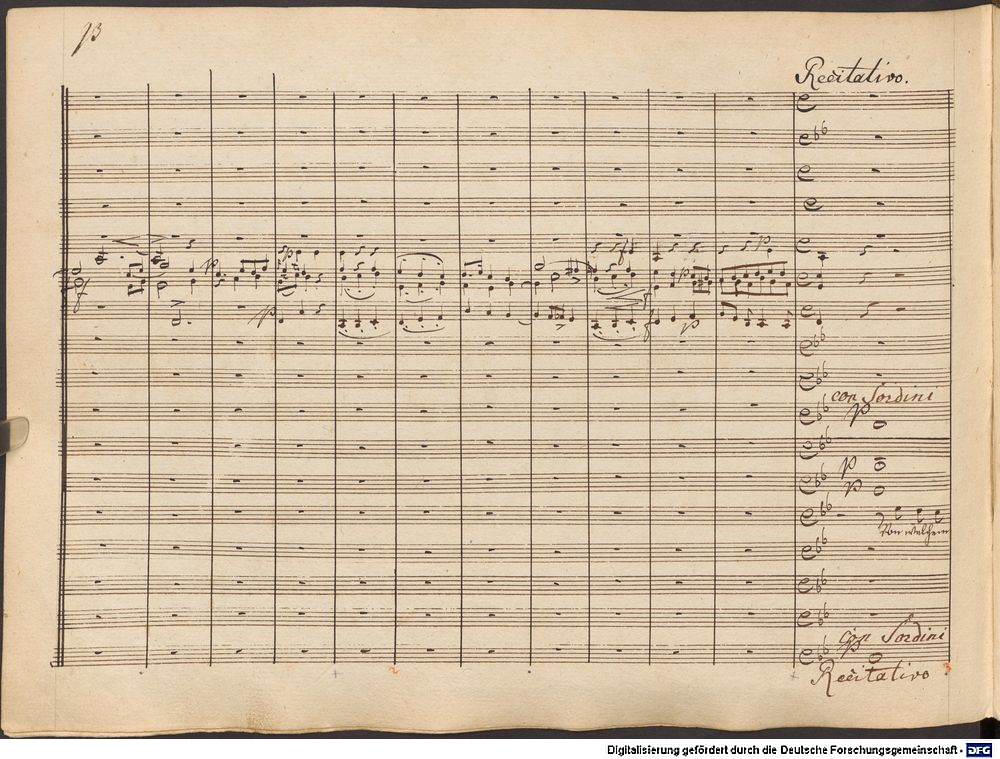 13
Recitativo.
p
p
f
p
f
p
f
p
con Sordini
p
p
p
Von welchem
con Sordini
p
2
Recitativo
3
Digitalisierung gefördert durch die Deutsche Forschungsgemeinschaft - DFG